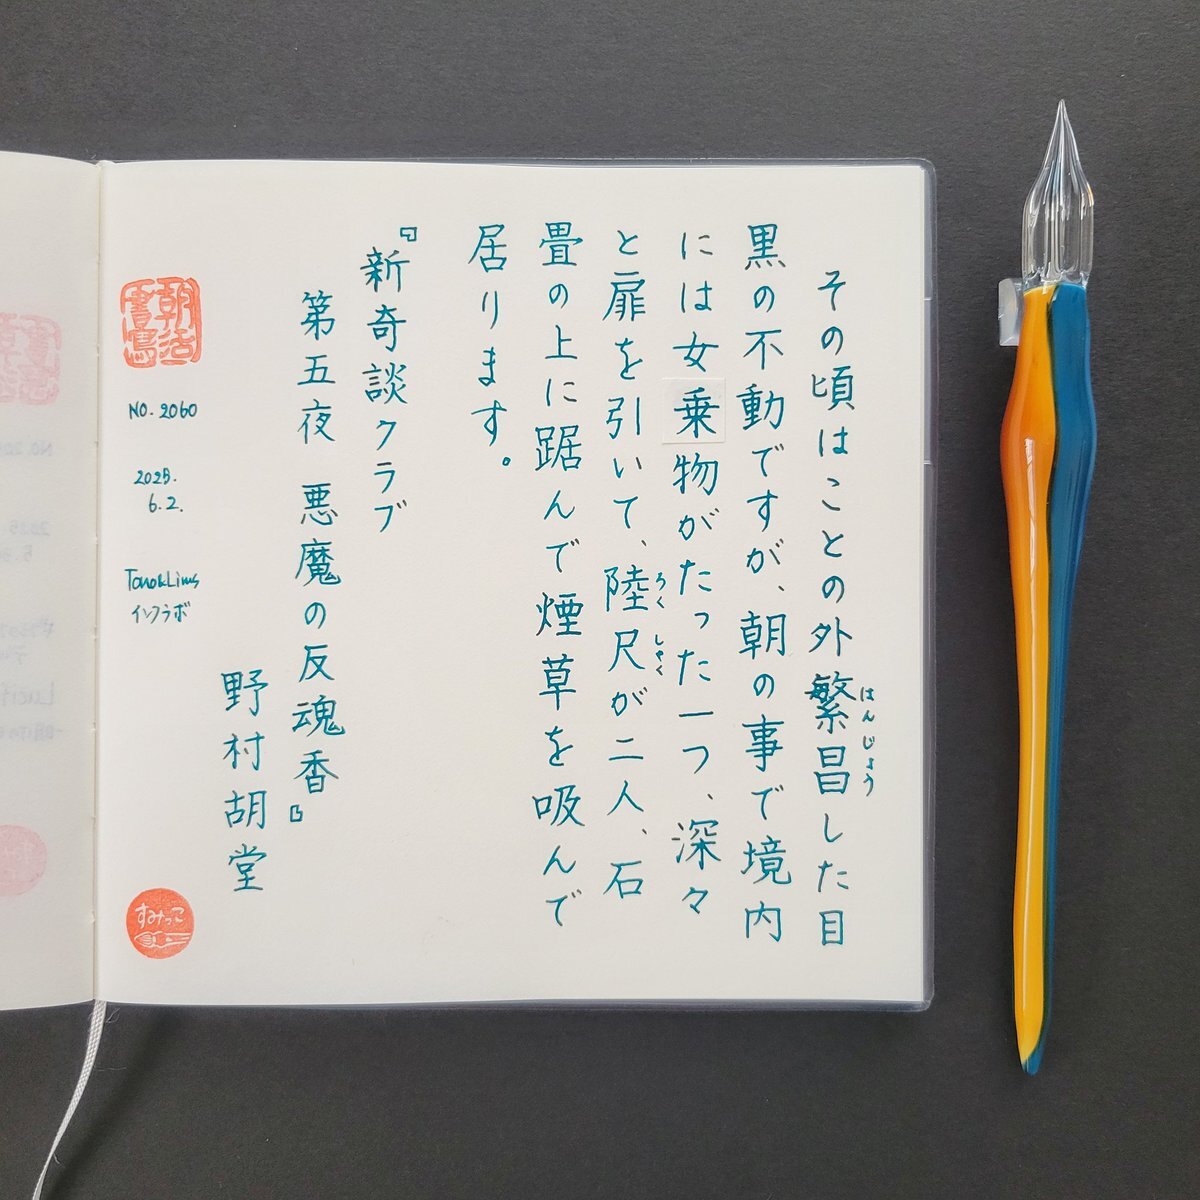 その頃はことの外繁昌した目
はんじょう
黒の不動ですが、朝の事で境内
には女乗物がたった一つ、深々
と扉を引いて、陸尺が二人、石
ろくしゃく
畳の上に踞んで煙草を吸んで
居ります。
『新奇談クラブ
第五夜 悪魔の反魂香』
野村胡堂
朝活書写
NO. 2060
2025.
6.2.
Tono&Lims
インクラボ
すみっこ